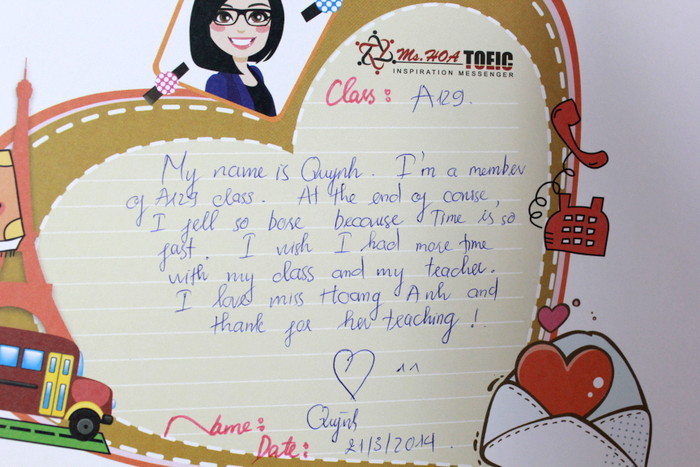 Ms. HOA TOEIC
INSPIRATION MESSENGER
Class: A129.
My name is Quỳnh. I'm a member
of A129 class. At the end of course,
I fell so bore because Time is so
fast. I wish I had more time
with my class and my teacher.
I love miss Hoang Anh and
thank for her teaching!
^^
Name: Quỳnh
Date: 21/3/2014.